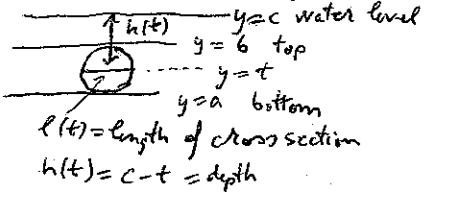 h(t)
y=c water level
y=b top
y=t
y=a bottom
l(t)=length of cross section
h(t)=c-t=depth